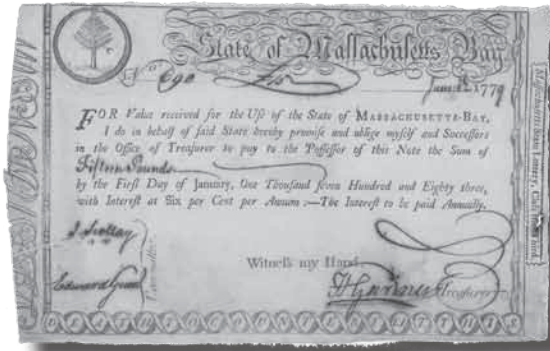 State of Massachusetts Bay.
No. 690
1779
FOR Value received for the Use of the State of MASSACHUSETTS-BAY,
I do in behalf of said State hereby promise and oblige myself and Successors
in the Office of Treasurer to pay to the Possessor of this Note the Sum of
Fifteen Pounds
by the First Day of January, One Thousand seven Hundred and Eighty three,
with Interest at Six per Cent per Annum :—The Interest to be paid Annually.
Witness my Hand
H Gardner Treasurer
Edward
Massachusetts State Lottery, Class